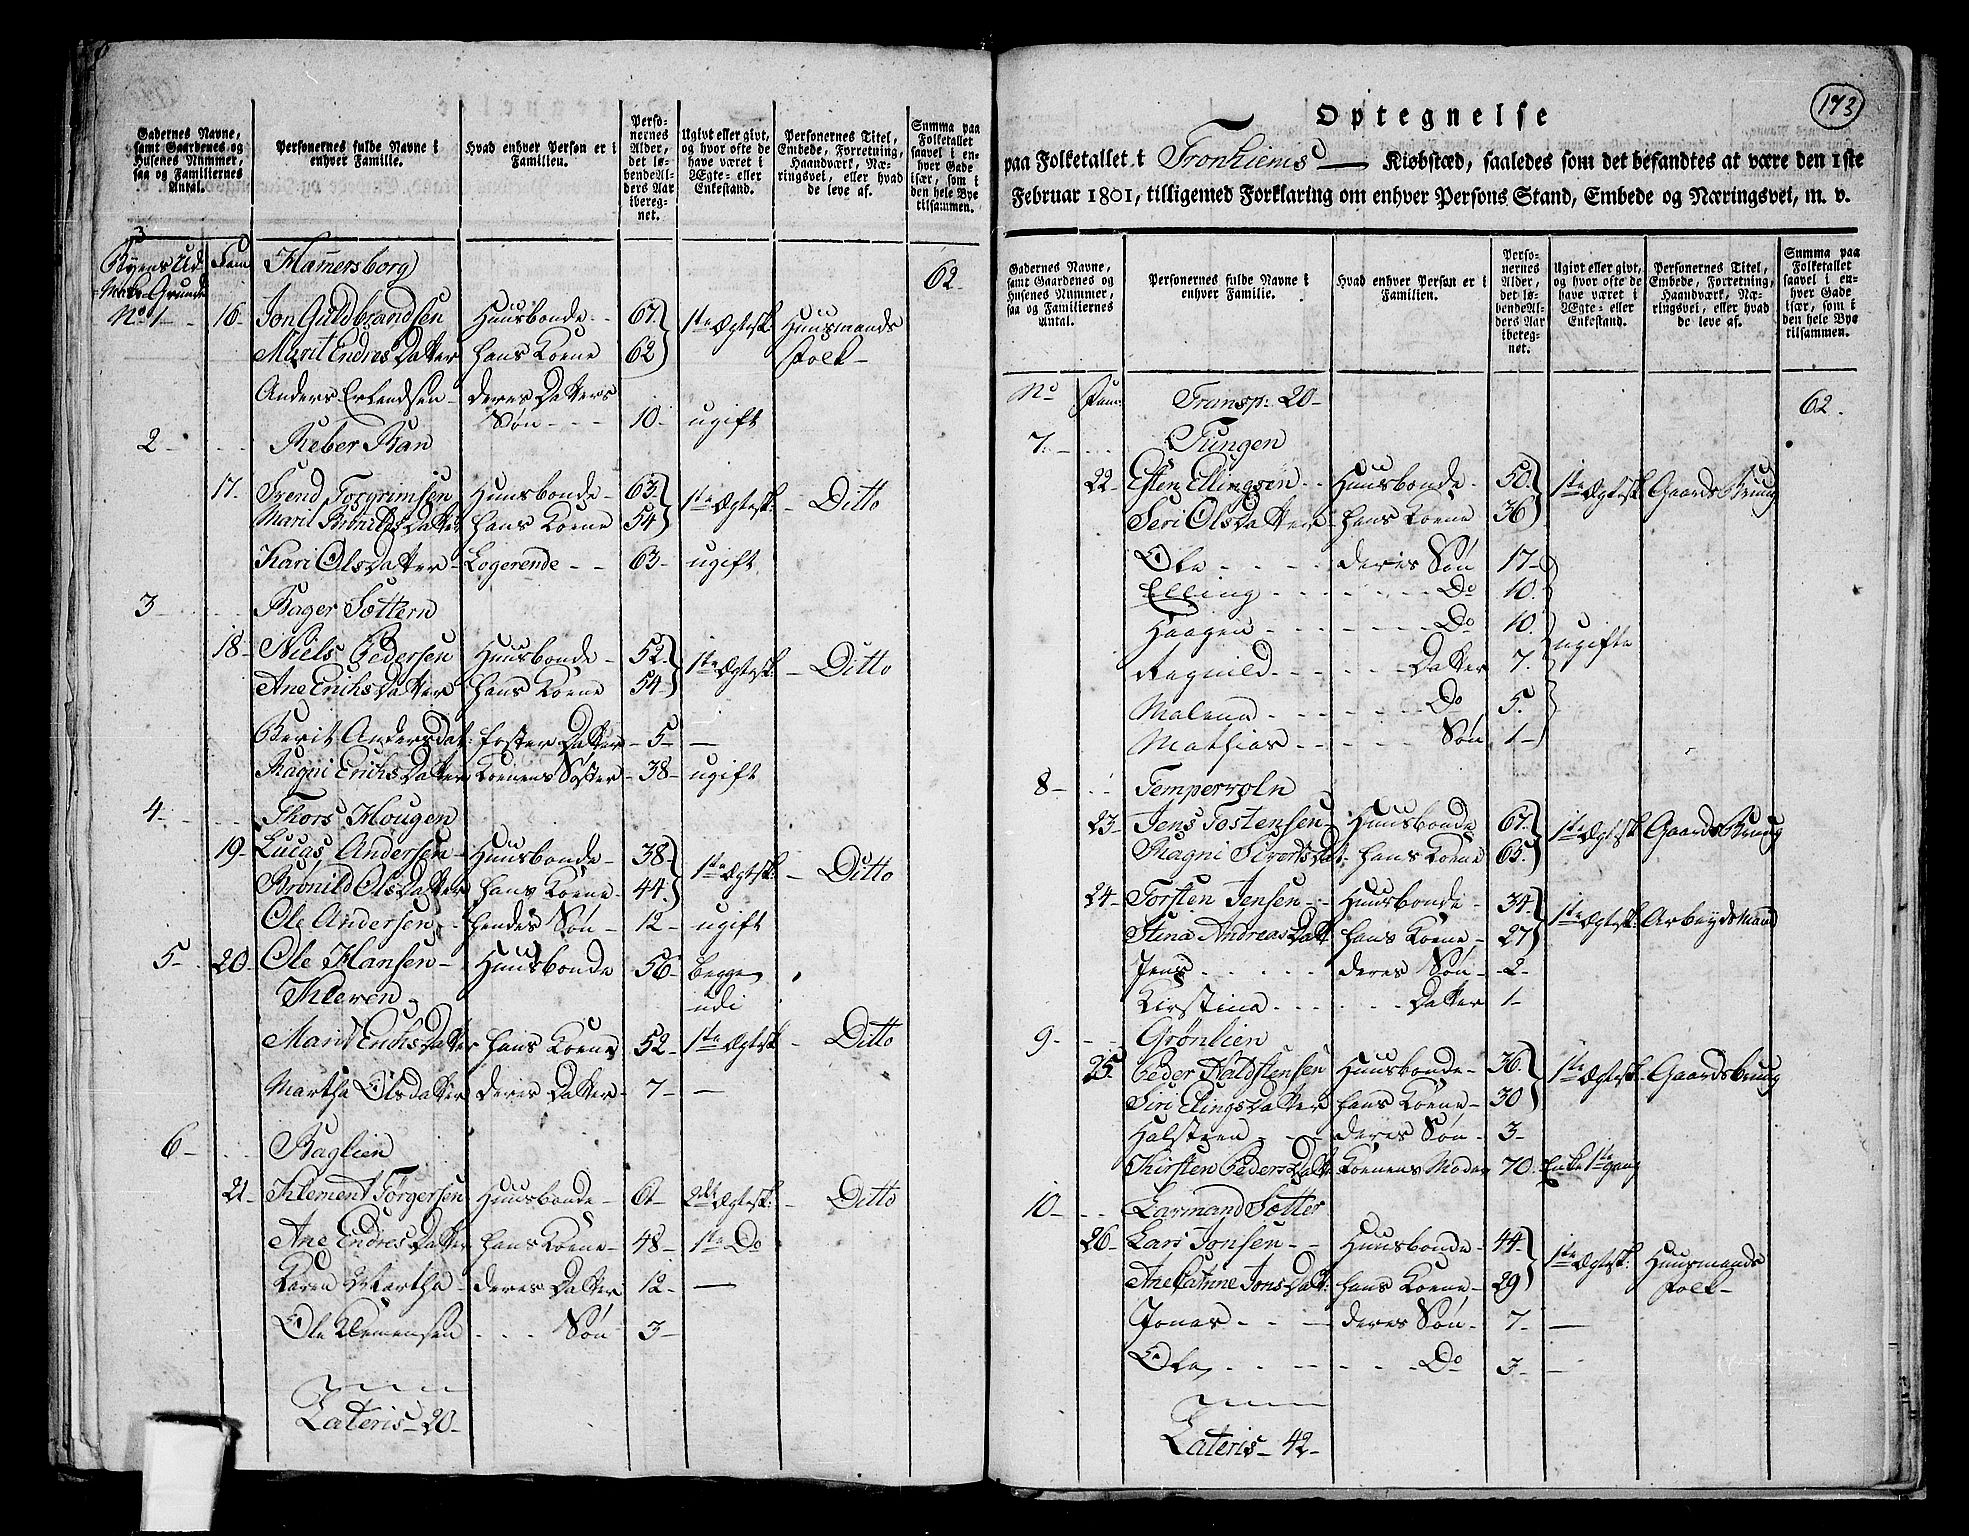 Gadernes Navne, samt Gaardenes og Husenes Nummer, saa og Familiernes Antal.
Personernes fulde Navne i enhver Familie.
Hvad enhver Person er i Familien.
Personernes Alder, det løbende Alders Aar iberegnet.
Ugivt eller givt, og hvor ofte de have været i Ægte- eller Enkestand.
Personernes Titel, Embede, Forretning, Haandværk, Næringsvei, eller hvad de leve af.
Summa paa Folketallet saavel i enhver Gade især, som i den hele Bye tilsammen.
Byens Ud- Fam Hamersborg 62.
Marks Grunde
No 1- 16- Jon Guldbrandsen Huusbonde- 67. 1ste Ægtesk: Huusmands
Marit Endres Datter hans Kone 62 Folk-
Anders Erlendsen- deres Datters
Søn - - - 10- ugift
2- Reber Ban
17. Svend Torgrimsen Huusbonde- 63. 1ste Ægtesk: - Ditto
Marit Brønilds Datter hans Kone 54
Kari Ols Datter- Logerende - - 63- ugift
3- Bager Sættern
18- Niels Pedersen Huusbonde- 52. 1ste Ægtesk: - Ditto
Ane Erichs Datter hans Kone 54-
Berit Andersdat: foster Datter- 5- -
Ragni Erichs Datter Konens Søster- 38- ugift
4- Thors Hougen
19- Lucas Andersen- Huusbonde- 38- 1ste Ægtesk. - Ditto
Brønild Ols Datter hans Kone- 44.
Ole Andersen- hendes Søn- 12- ugift
5- 20- Ole Hansen- Huusbonde 56- begge
Kleven udi
Marit Erichs Datter hans Kone 52- 1ste Ægtesk - Ditto
Martha Olsdatter deres Datter- 7- -
6- Baglien
21- Klement Torgersen Huusbonde- 61- 2det Ægtesk: - Ditto
Ane Endres Datter hans Kone- 48- 1ste Do
Karen Martha- deres Datter 12- -
Ole Klemensen - - - Søn- 3-
Lateris- 20-
173
Optegnelse
paa Folketallet i Tronhiems Kiøbstæd, saaledes som det befandtes at være den 1ste
Februar 1801, tilligemed Forklaring om enhver Persons Stand, Embede og Næringsvei, m. v.
Gadernes Navne, samt Gaardenes og Husenes Nummer, saa og Familiernes Antal.
Personernes fulde Navne i enhver Familie.
Hvad enhver Person er i Familien.
Personernes Alder, det løbende Alders Aar iberegnet.
Ugivt eller givt, og hvor ofte de have været i Ægte- eller Enkestand.
Personernes Titel, Embede, Forretning, Haandværk, Næringsvei, eller hvad de leve af.
Summa paa Folketallet saavel i enhver Gade især, som i den hele Bye tilsammen.
No Fam: Transp: 20- 62.
7- Tungen
22- Esten Ellingsen- Huusbonde- 50. 1ste Ægtesk. Gaards Brug
Seri Ols Datter- hans Kone 36
Ole - - - - deres Søn 17-
Elling - - - - Do 10.
Haagen - - - - Do 10. ugifte
Ragnild - - - - Datter 7.
Malena - - - - Do 5.
Mathias - - - - Søn 1-
8- Tempervoln
23- Jens Tostensen- Huusbonde 67. 1ste Ægtesk. Gaards Brug
Magni Siverts Dat: hans Kone 65.
24- Torsten Jensen- Huusbonde- 34. 1ste Ægtesk: Arbeydsmand
Stina Andreas Datt hans Kone- 27
Jens - - - - deres Søn- 2-
Kirstina - - - - Datter 1-
9- Grønlien
25. Peder Haldstensen Huusbonde- 36. 1ste Ægtesk- Gaardsbrug
Siri Elings Datter hans Kone- 30
Halsteen - - deres Søn- 3-
Kirsten Peders Datt Konens Moder 70. Enke 1ste gang
10- Larmand Sætter
26- Lars Jonsen - - Huusbonde- 44- 1ste Ægtesk: Huusmands
Ane Jons Datt: hans Kone- 29 Folk-
Jonas - - - deres Søn- 7- -
Ole - - - - - Do 3- -
Lateris- 42-